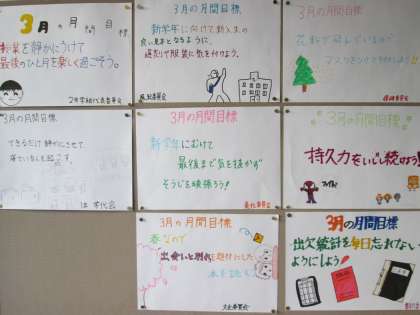 3月の月間目標
授業を静かにうけて
最後のひと月を楽しく過ごそう。
3月の月間目標
新学年に向けて新入生の
良い見本となるように、
進んで服装に気を付けよう。
3月の月間目標
花粉で
マスク
3月の月間目標
できるだけ静かにさせて、
寝ている人も起こす。
3月の月間目標
新学年にむけて
最後まで気を抜かず
そうじを頑張ろう!
美化委員会
3月の月間目標
持久力をいじし続けよう!
3月の月間目標
春なので
出会いと別れを題材にした
本を読もう
文化委員会
3月の月間目標
出欠統計を毎日忘れない
ようにしよう!